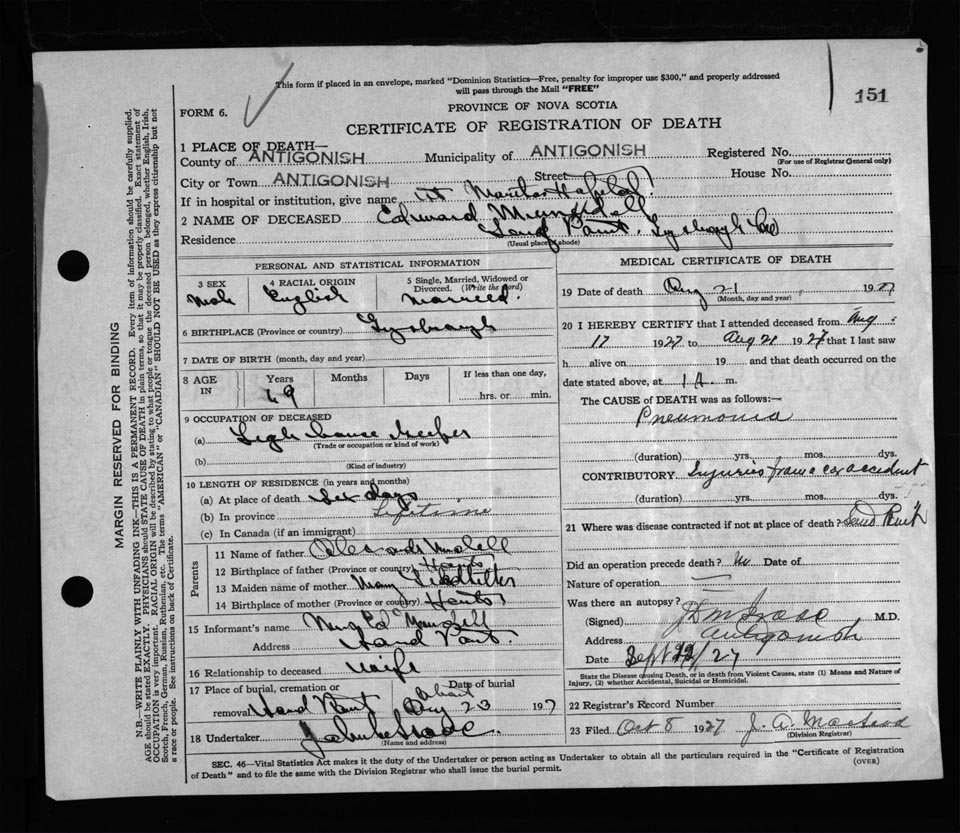 This form if placed in an envelope, marked "Dominion Statistics—Free, penalty for improper use $300," and properly addressed
will pass through the Mail "FREE"
151
FORM 6.
PROVINCE OF NOVA SCOTIA
CERTIFICATE OF REGISTRATION OF DEATH
1 PLACE OF DEATH—
County of ANTIGONISH Municipality of ANTIGONISH Registered No.
(For use of Registrar General only)
City or Town ANTIGONISH Street House No.
If in hospital or institution, give name St Martha Hospital
2 NAME OF DECEASED Edward Munsell
Residence Sand Point, Guysborough Co
(Usual place of abode)
PERSONAL AND STATISTICAL INFORMATION
3 SEX 4 RACIAL ORIGIN 5 Single, Married, Widowed or
Divorced. (Write the word)
Male English Married.
6 BIRTHPLACE (Province or country) Guysborough
7 DATE OF BIRTH (month, day and year)
8 AGE IN Years Months Days If less than one day,
49 hrs. or min.
9 OCCUPATION OF DECEASED
(a) Light house keeper
(Trade or occupation or kind of work)
(b)
(Kind of industry)
10 LENGTH OF RESIDENCE (in years and months)
(a) At place of death Six days
(b) In province Lifetime
(c) In Canada (if an immigrant)
Parents
11 Name of father
12 Birthplace of father (Province or country)
13 Maiden name of mother Mary
14 Birthplace of mother (Province or country)
15 Informant's name Mrs Ed Munsell
Address Sand Point
16 Relationship to deceased wife
17 Place of burial, cremation or Date of burial
removal Sand Point about Aug 23 1927
18 Undertaker
(Name and address)
MEDICAL CERTIFICATE OF DEATH
19 Date of death Aug 21 1927
(Month, day and year)
20 I HEREBY CERTIFY that I attended deceased from Aug
17 1927 to Aug 21 1927 that I last saw
h alive on 19 and that death occurred on the
date stated above, at 1 A. m.
The CAUSE OF DEATH was as follows:—
Pneumonia
(duration) yrs. mos. dys.
CONTRIBUTORY Injuries from car accident
(duration) yrs. mos. dys.
21 Where was disease contracted if not at place of death? Sand Point
Did an operation precede death? No Date of
Nature of operation
Was there an autopsy?
(Signed) M.D.
Address Antigonish
Date Sept 22/27
State the Disease causing Death, or in death from Violent Causes, state (1) Means and Nature of
Injury, (2) whether Accidental, Suicidal or Homicidal.
22 Registrar's Record Number
23 Filed Oct 8 1927 J. A. MacLeod
(Division Registrar)
SEC. 46—Vital Statistics Act makes it the duty of the Undertaker or person acting as Undertaker to obtain all the particulars required in the "Certificate of Registration
of Death" and to file the same with the Division Registrar who shall issue the burial permit.
(OVER)
MARGIN RESERVED FOR BINDING
N.B.—WRITE PLAINLY WITH UNFADING INK—THIS IS A PERMANENT RECORD. Every item of information should be carefully supplied.
AGE should be stated EXACTLY. PHYSICIANS should STATE CAUSE OF DEATH in plain terms, so that it may be properly classified. Exact statement of
OCCUPATION is very important. RACIAL ORIGIN will be described by stating to what people or tongue the deceased person belonged, whether English, Irish,
Scotch, French, German, Russian, Ruthenian, etc. The terms "AMERICAN" or "CANADIAN" SHOULD NOT BE USED as they express citizenship but not
a race or people. See instructions on back of Certificate.